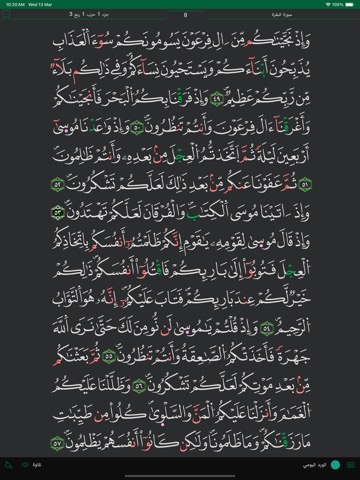 10:20 AM Wed 13 Mar
جزء 1 حزب 1 ربع 3
8
سورة البقرة
وَإِذْ نَجَّيْنَٰكُم مِّنْ ءَالِ فِرْعَوْنَ يَسُومُونَكُمْ سُوٓءَ ٱلْعَذَابِ
يُذَبِّحُونَ أَبْنَآءَكُمْ وَيَسْتَحْيُونَ نِسَآءَكُمْ وَفِى ذَٰلِكُم بَلَآءٌ
مِّن رَّبِّكُمْ عَظِيمٌ ٤٩ وَإِذْ فَرَقْنَا بِكُمُ ٱلْبَحْرَ فَأَنجَيْنَٰكُمْ
وَأَغْرَقْنَآ ءَالَ فِرْعَوْنَ وَأَنتُمْ تَنظُرُونَ ٥٠ وَإِذْ وَٰعَدْنَا مُوسَىٰٓ
أَرْبَعِينَ لَيْلَةً ثُمَّ ٱتَّخَذْتُمُ ٱلْعِجْلَ مِنۢ بَعْدِهِۦ وَأَنتُمْ ظَٰلِمُونَ
٥١ ثُمَّ عَفَوْنَا عَنكُم مِّنۢ بَعْدِ ذَٰلِكَ لَعَلَّكُمْ تَشْكُرُونَ ٥٢
وَإِذْ ءَاتَيْنَا مُوسَى ٱلْكِتَٰبَ وَٱلْفُرْقَانَ لَعَلَّكُمْ تَهْتَدُونَ ٥٣
وَإِذْ قَالَ مُوسَىٰ لِقَوْمِهِۦ يَٰقَوْمِ إِنَّكُمْ ظَلَمْتُمْ أَنفُسَكُم بِٱتِّخَاذِكُمُ
ٱلْعِجْلَ فَتُوبُوٓا۟ إِلَىٰ بَارِئِكُمْ فَٱقْتُلُوٓا۟ أَنفُسَكُمْ ذَٰلِكُمْ
خَيْرٌ لَّكُمْ عِندَ بَارِئِكُمْ فَتَابَ عَلَيْكُمْ إِنَّهُۥ هُوَ ٱلتَّوَّابُ
ٱلرَّحِيمُ ٥٤ وَإِذْ قُلْتُمْ يَٰمُوسَىٰ لَن نُّؤْمِنَ لَكَ حَتَّىٰ نَرَى ٱللَّهَ
جَهْرَةً فَأَخَذَتْكُمُ ٱلصَّٰعِقَةُ وَأَنتُمْ تَنظُرُونَ ٥٥ ثُمَّ بَعَثْنَٰكُم
مِّنۢ بَعْدِ مَوْتِكُمْ لَعَلَّكُمْ تَشْكُرُونَ ٥٦ وَظَلَّلْنَا عَلَيْكُمُ
ٱلْغَمَامَ وَأَنزَلْنَا عَلَيْكُمُ ٱلْمَنَّ وَٱلسَّلْوَىٰ كُلُوا۟ مِن طَيِّبَٰتِ
مَا رَزَقْنَٰكُمْ وَمَا ظَلَمُونَا وَلَٰكِن كَانُوٓا۟ أَنفُسَهُمْ يَظْلِمُونَ ٥٧
تلاوة
الورد اليومي